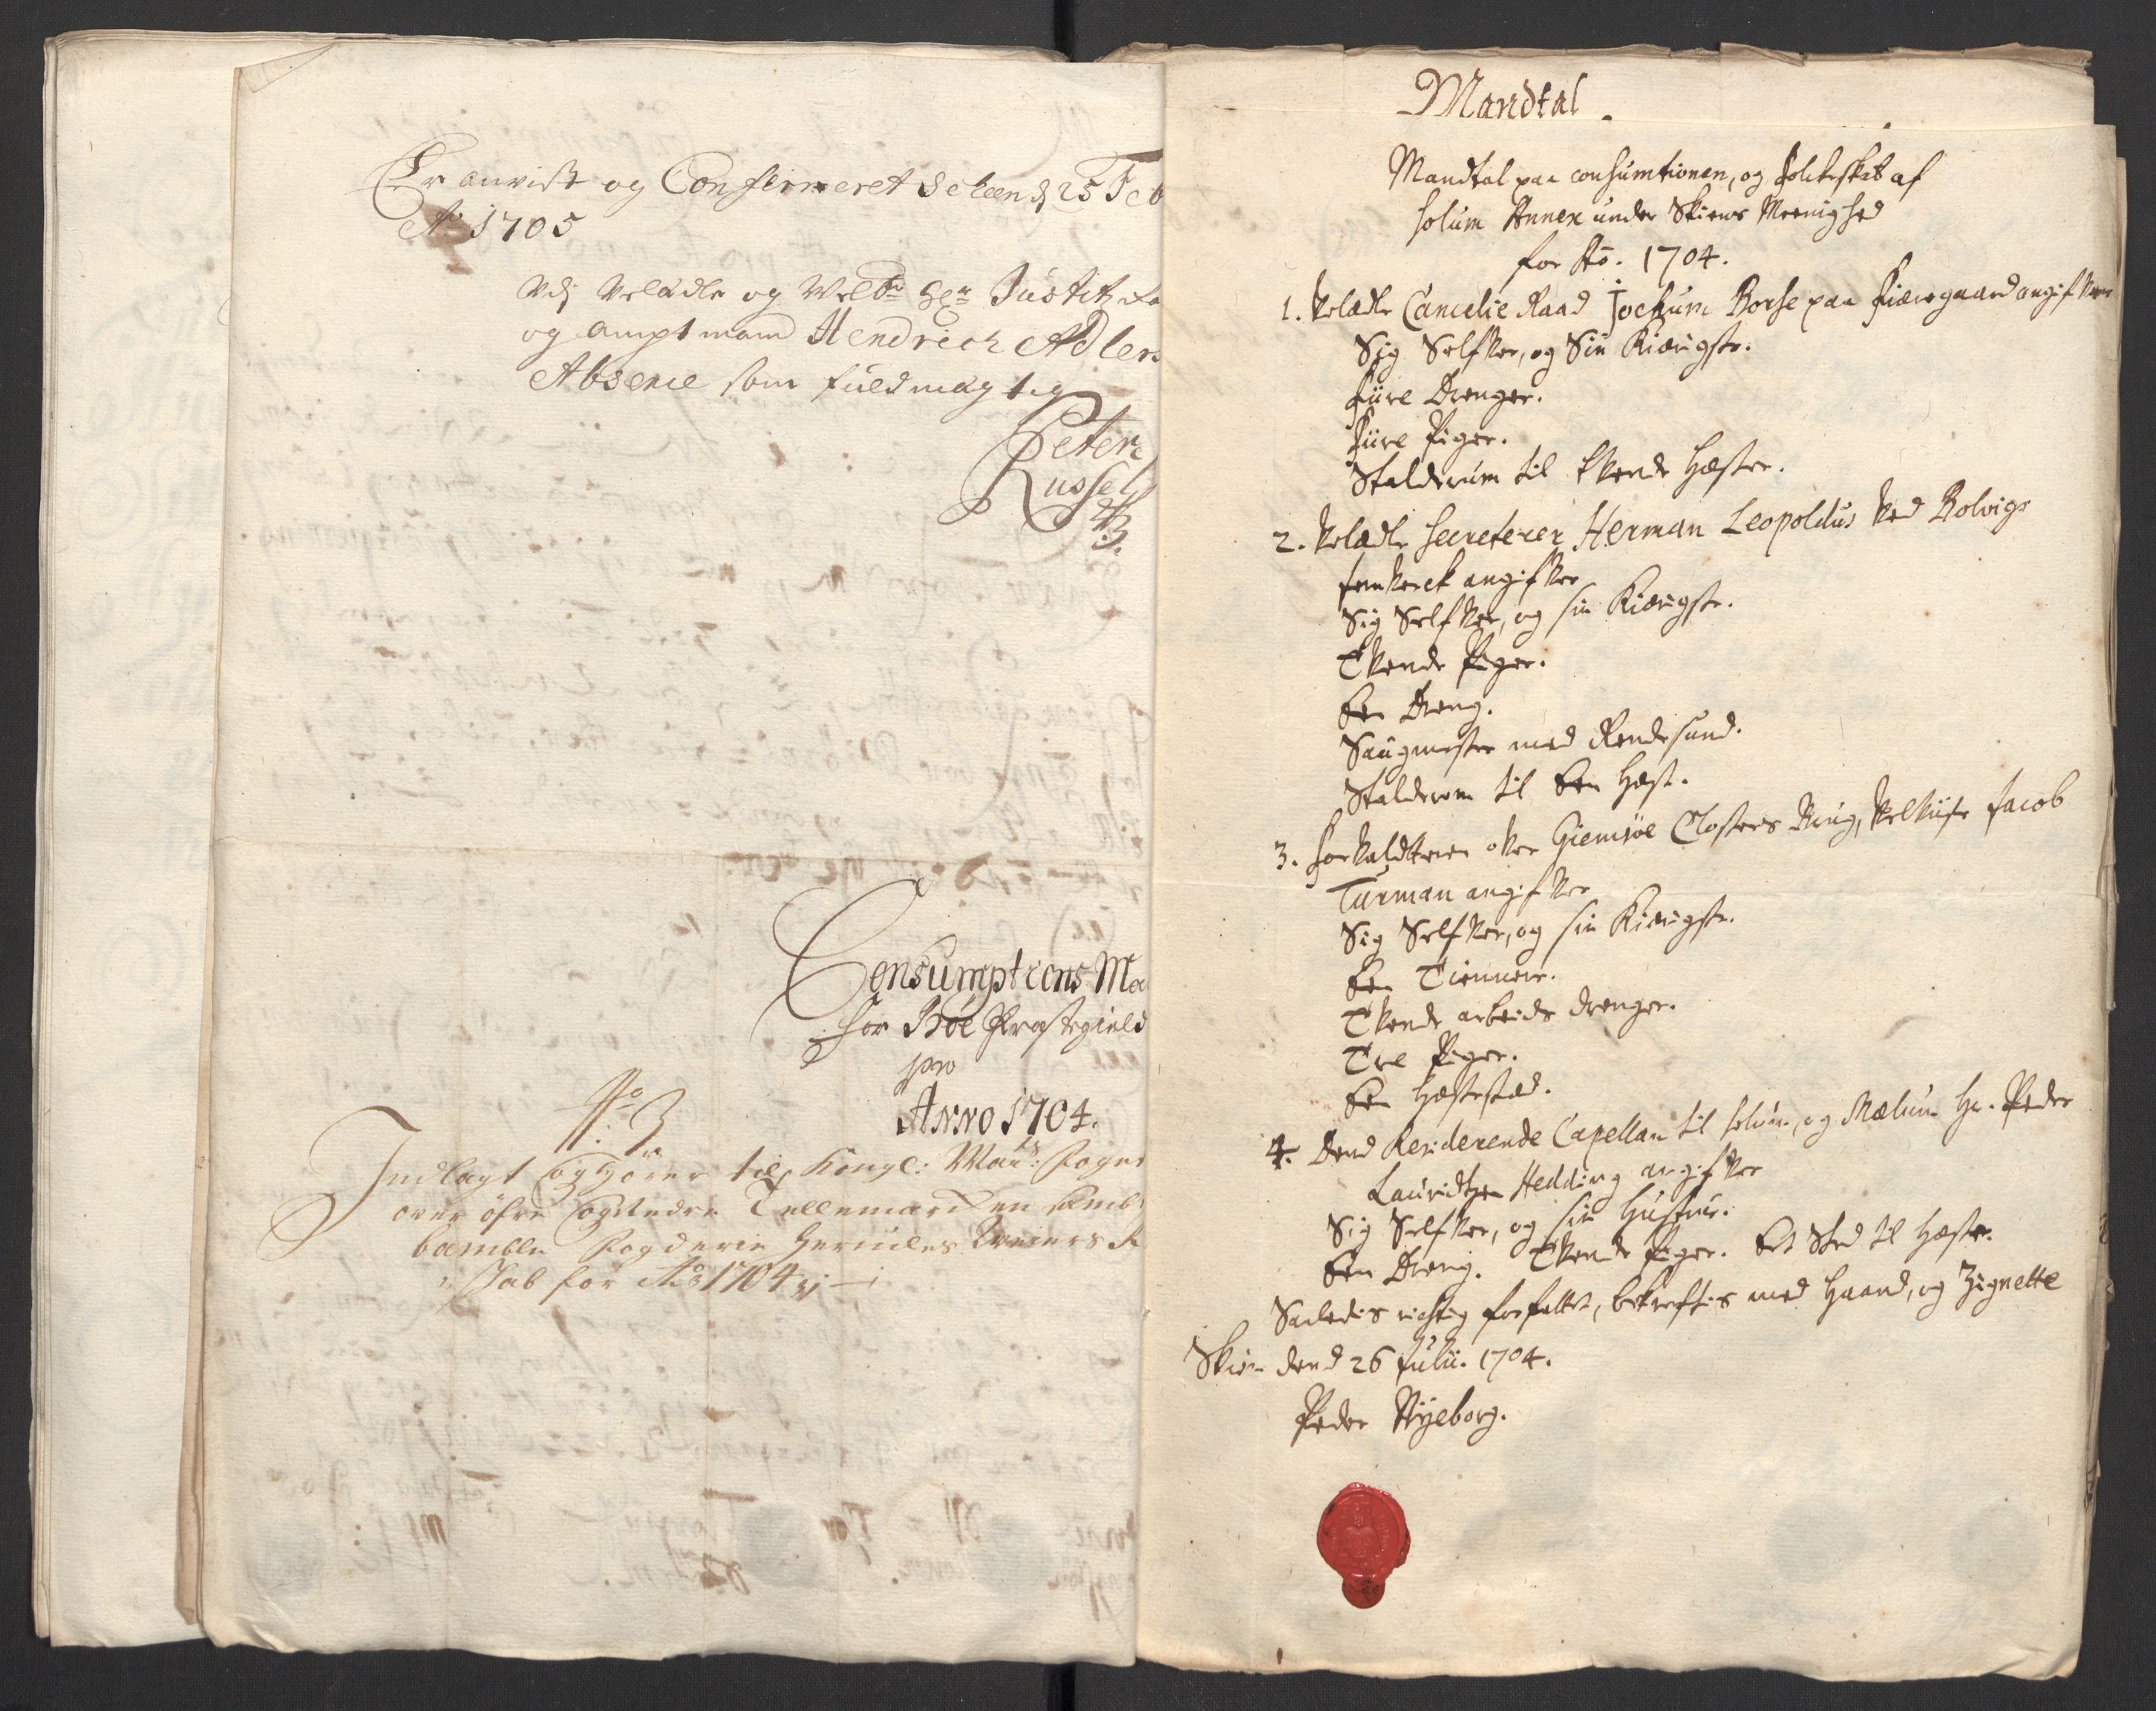 Er anvist og Confirmeret Scheen d 25 Feb
Ao 1705
Udj Velædle og Velb: Hr: Justitz Ra
og amptmand Hendrich Adlers
Absence som fuldmægtig
Peter
Russel
Consumptions Ma
for Böe Præstegield
pro
Anno 1704.
No 3
Indlagt og hörer til Kongl: May:ts Foget
over öfre og Nedre Tellemarcken samb
bamble Fogderie Hercules Weiers R
schab for Ao 1704
Mandtal.
Mandtal paa consumtionen, og folckeskat af
Solum Annex under Skiens Meenighed
for Ao. 1704.
1. Velædle Cancelie Raad Jochum Borse paa Fiæregaard angifver
Sig Selfver, og Sin Kiærigste.
Fiire Drenger.
Fiire Piger.
Stalderum til tvende Hæster.
2. Velædle Secreterer Herman Leopoldus ved Bolvigs
Jernverck angifver
Sig Selfver, og sin Kiærigste.
Tvende Piger.
Een Dreng.
Saugmester med Rendesund.
Stalderom til Een Hæst.
3. Forvaldteren over Giemsöe Closters Brug, Velviise Jacob
Turman angifver
Sig Selfver, og sin Kiærigste.
Een Tiennere.
Tvende arbeids drenger.
Tre Piger.
Een Hæstestæd.
4. Dend Residerende Capellan til Solum, og Mælum Hr. Peder
Lauridtzen Hedding angifver
Sig Selfver, og sin Hustrue.
Een Dreng. Tvende Piger. Eet Sted til Hæste.
Saaledis richtig forfattet, bekreftis med Haand, og Zignette
Skien dend 26 Julii. 1704.
Peder Nyeborg.